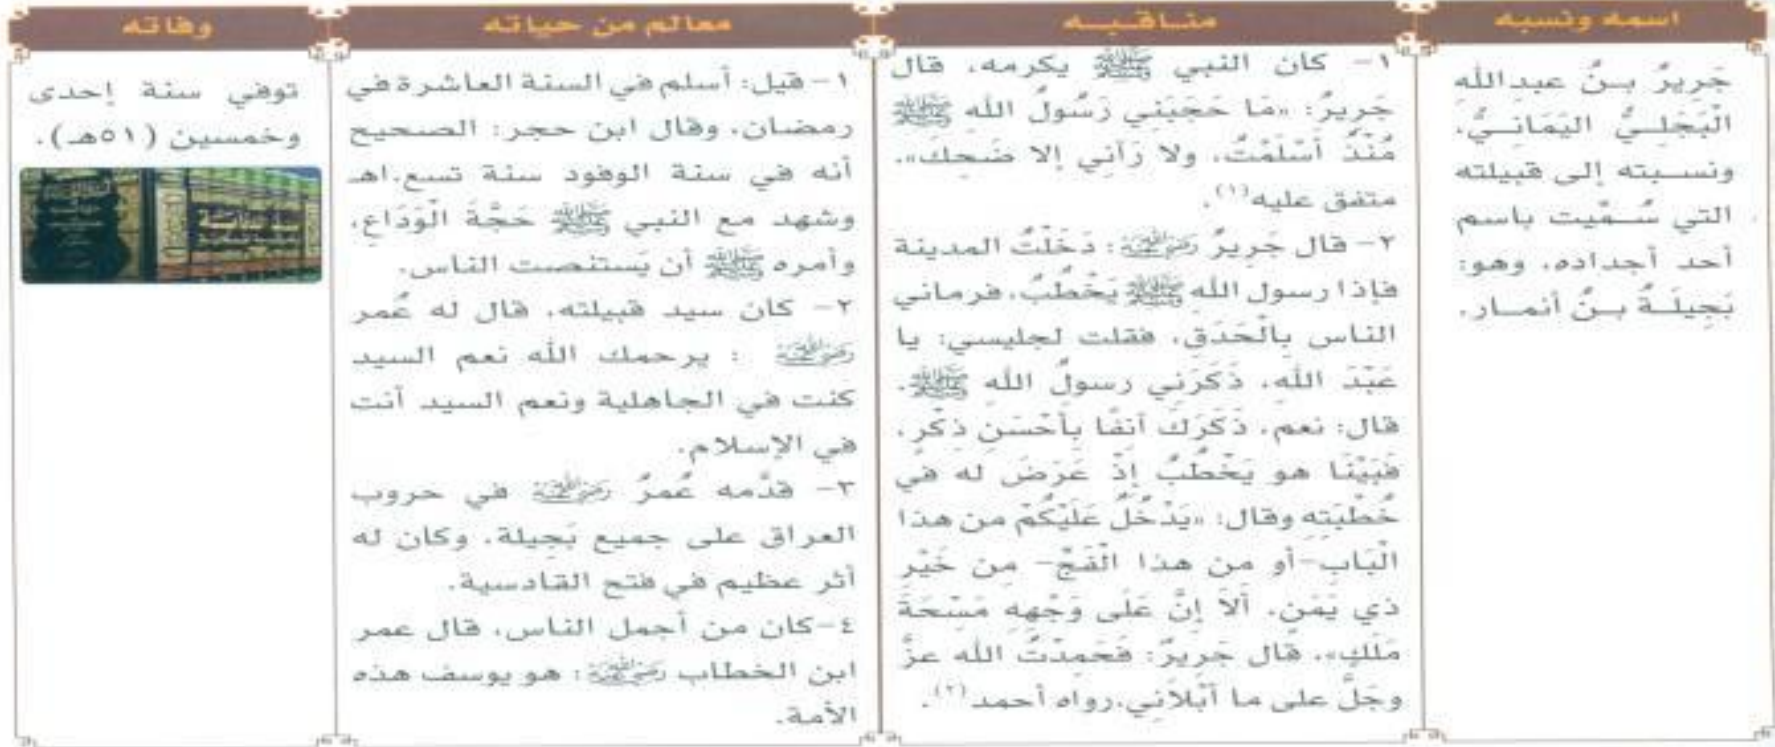 اسمه ونسبه
جَريرُ بـنُ عبدالله
الْبَجَلِـيُّ اليَمَانِـيُّ،
ونسـبته إلى قبيلته
التي سُـمِّيت باسم
أحد أجداده، وهو:
بَجِيلَـةُ بـنُ أنمـار.
مناقبه
١- كان النبي ﷺ يكرمه، قال
جَريرُ: «مَا حَجَبَني رَسُولُ الله ﷺ
مُنْذُ أَسْلَمْتُ، ولا رَآني إلا ضَحِكَ».
متفق عليه(١).
٢- قال جَريرُ رَضِيَ اللَّهُ عَنْهُ: دَخَلْتُ المدينة
فإذا رسول الله ﷺ يَخْطُبُ، فرماني
الناس بِالْحَدَقِ، فقلت لجليسي: يا
عَبْدَ اللهِ، ذَكَرَني رسولُ الله ﷺ،
قال: نعم، ذَكَرَكَ آنفًا بِأَحْسَنِ ذِكْرٍ،
فَبَيْنَا هو يَخْطُبُ إذْ عَرَضَ له في
خُطْبَتِهِ وقال: «يَدْخُلُ عَلَيْكُمْ من هذا
الْبَابِ-أو من هذا الْفَجِّ- مِن خَيْرِ
ذي يَمَنٍ، ألاَ إنَّ عَلَى وَجْهِهِ مَسْحَةَ
مَلَكٍ»، قال جَرِيرُ: فَحَمِدْتُ الله عزَّ
وجَلَّ على ما أَبْلاَنِي.رواه أحمد(٢).
معالم من حياته
١- قيل: أسلم في السنة العاشرة في
رمضان، وقال ابن حجر: الصحيح
أنه في سنة الوفود سنة تسع.اهـ
وشهد مع النبي ﷺ حَجَّةَ الْوَدَاعِ،
وأمره ﷺ أن يَستنصت الناس.
٢- كان سيد قبيلته، قال له عُمر
رَضِيَ اللَّهُ عَنْهُ : يرحمك الله نعم السيد
كنت في الجاهلية ونعم السيد أنت
في الإسلام.
٣- قدَّمه عُمرُ رَضِيَ اللَّهُ عَنْهُ في حروب
العراق على جميع بَجِيلة، وكان له
أثر عظيم في فتح القادسية.
٤-كان من أجمل الناس، قال عمر
ابن الخطاب رَضِيَ اللَّهُ عَنْهُ: هو يوسف هذه
الأمة.
وفاته
توفي سنة إحدى
وخمسين (٥١هـ).